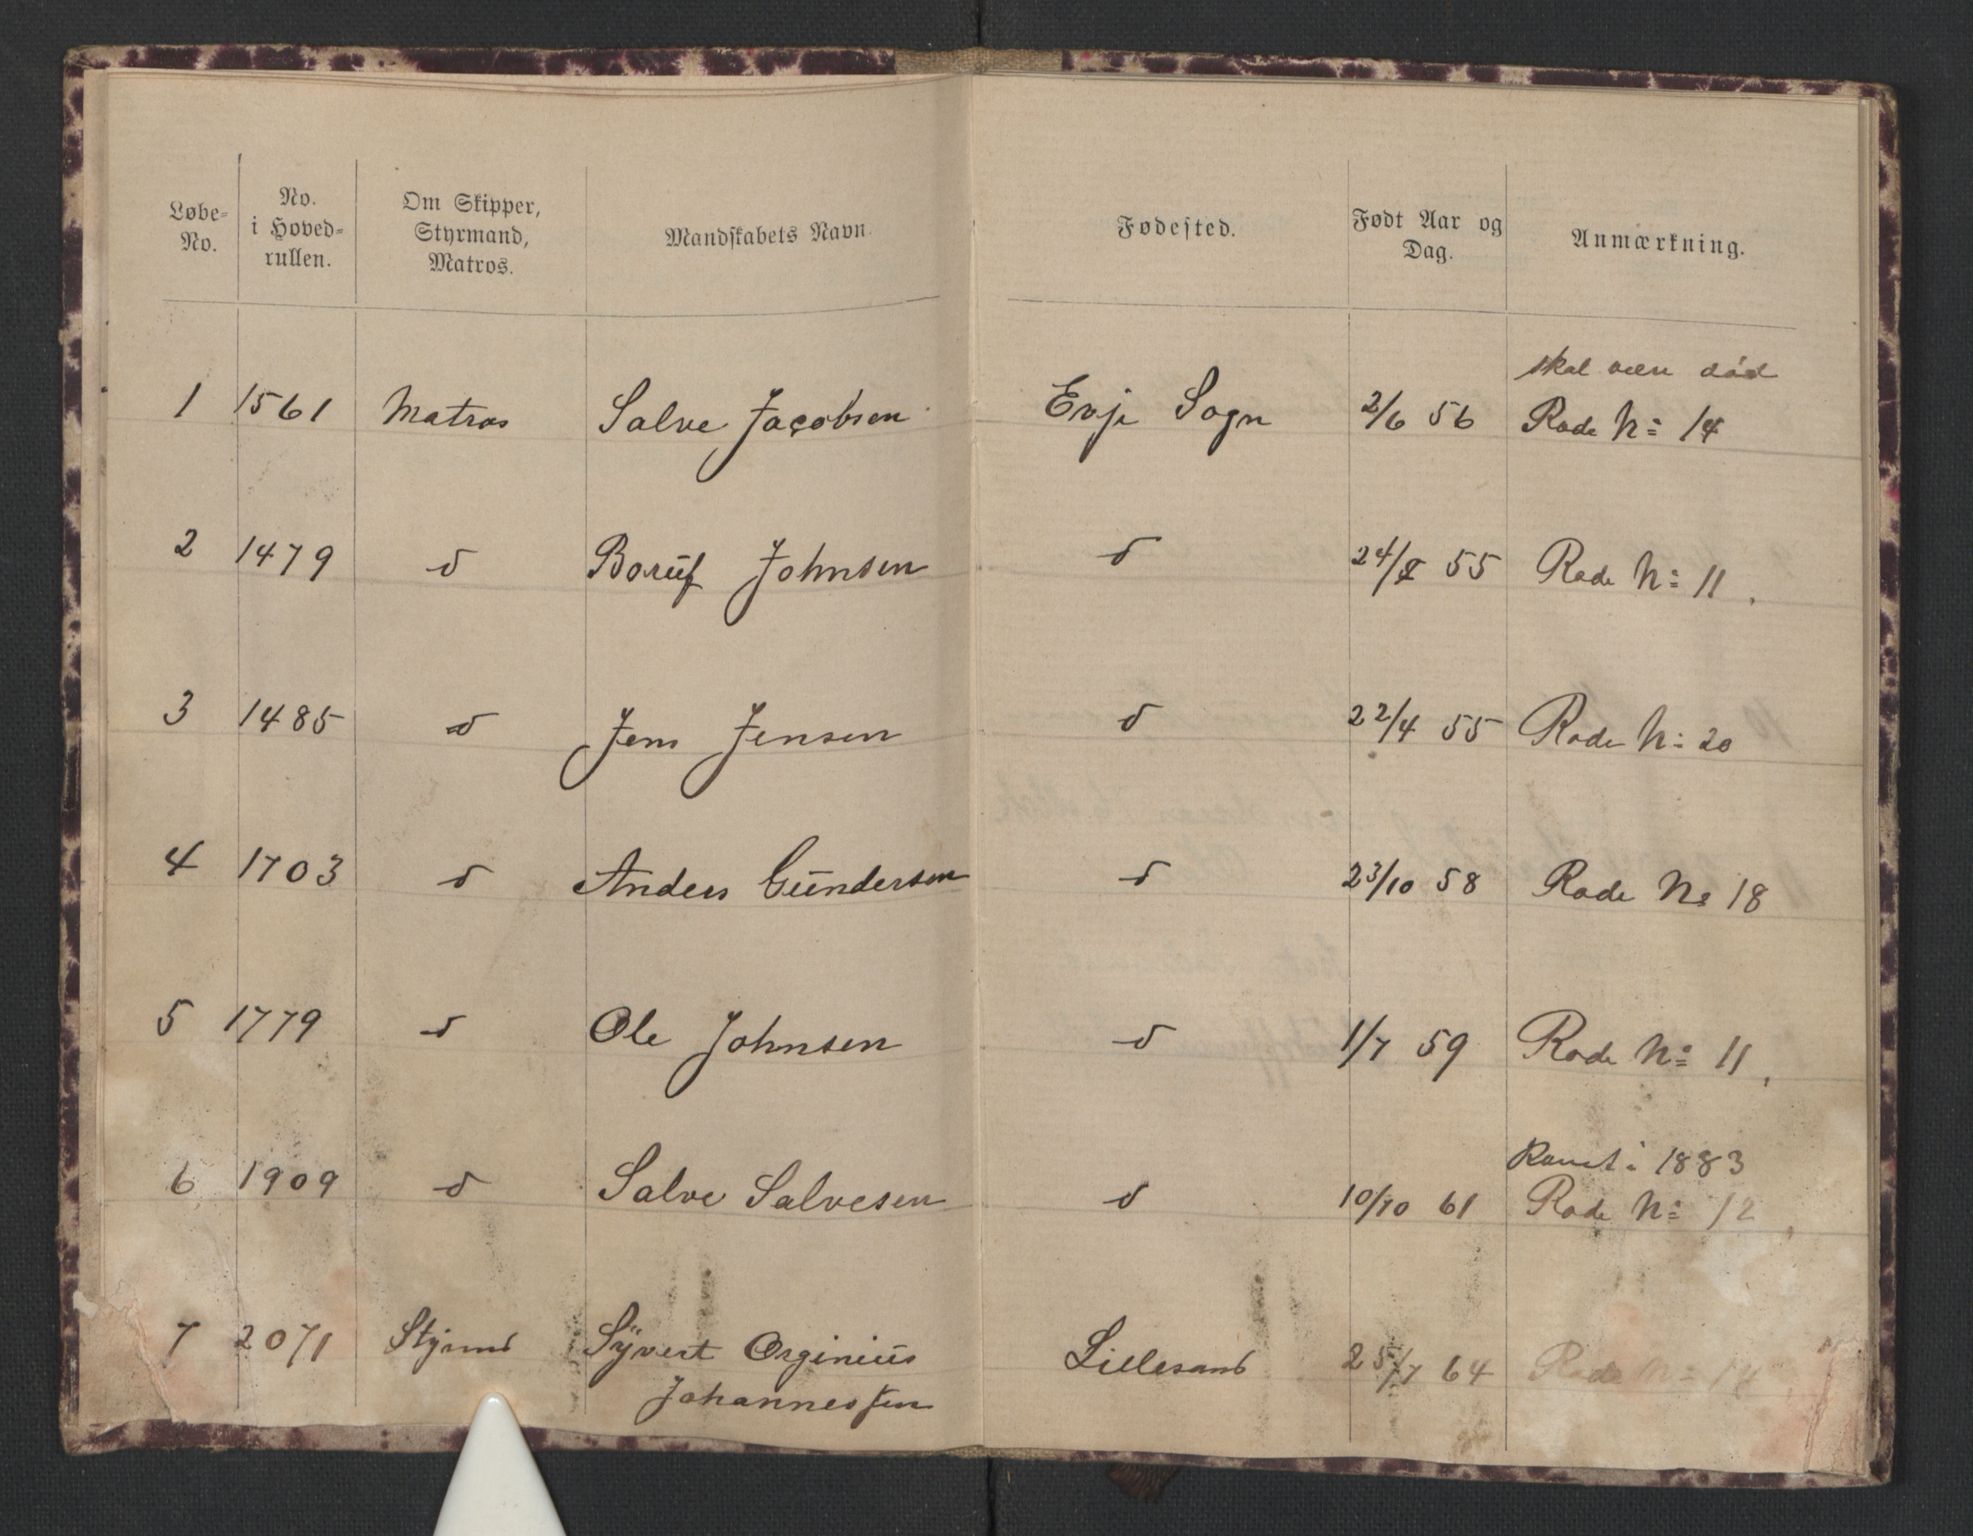 Løbe-No. No. i Hoved-rullen. Om Skipper, Styrmand, Matros. Mandskabets Navn. Fødested. Født Aar og Dag. Anmærkning.
skal være død
1 1561 Matros Salve Jacobsen Evje Sogn 2/6 56 Rode No 14
2 1479 d Boruf Johnsen d 24/ 55 Rode No 11,
3 1485 d Jens Jensen d 22/4 55 Rode No 20
4 1703 d Anders Gundersen d 23/10 58 Rode No 18
5 1779 d Ole Johnsen d 1/7 59 Rode No 11,
i 1883
6 1909 d Salve Salvesen d 10/10 61 Rode No 12,
7 2071 Styrmd Syvert Orginius Lillesand 25/7 64 Rode No
Johannessen